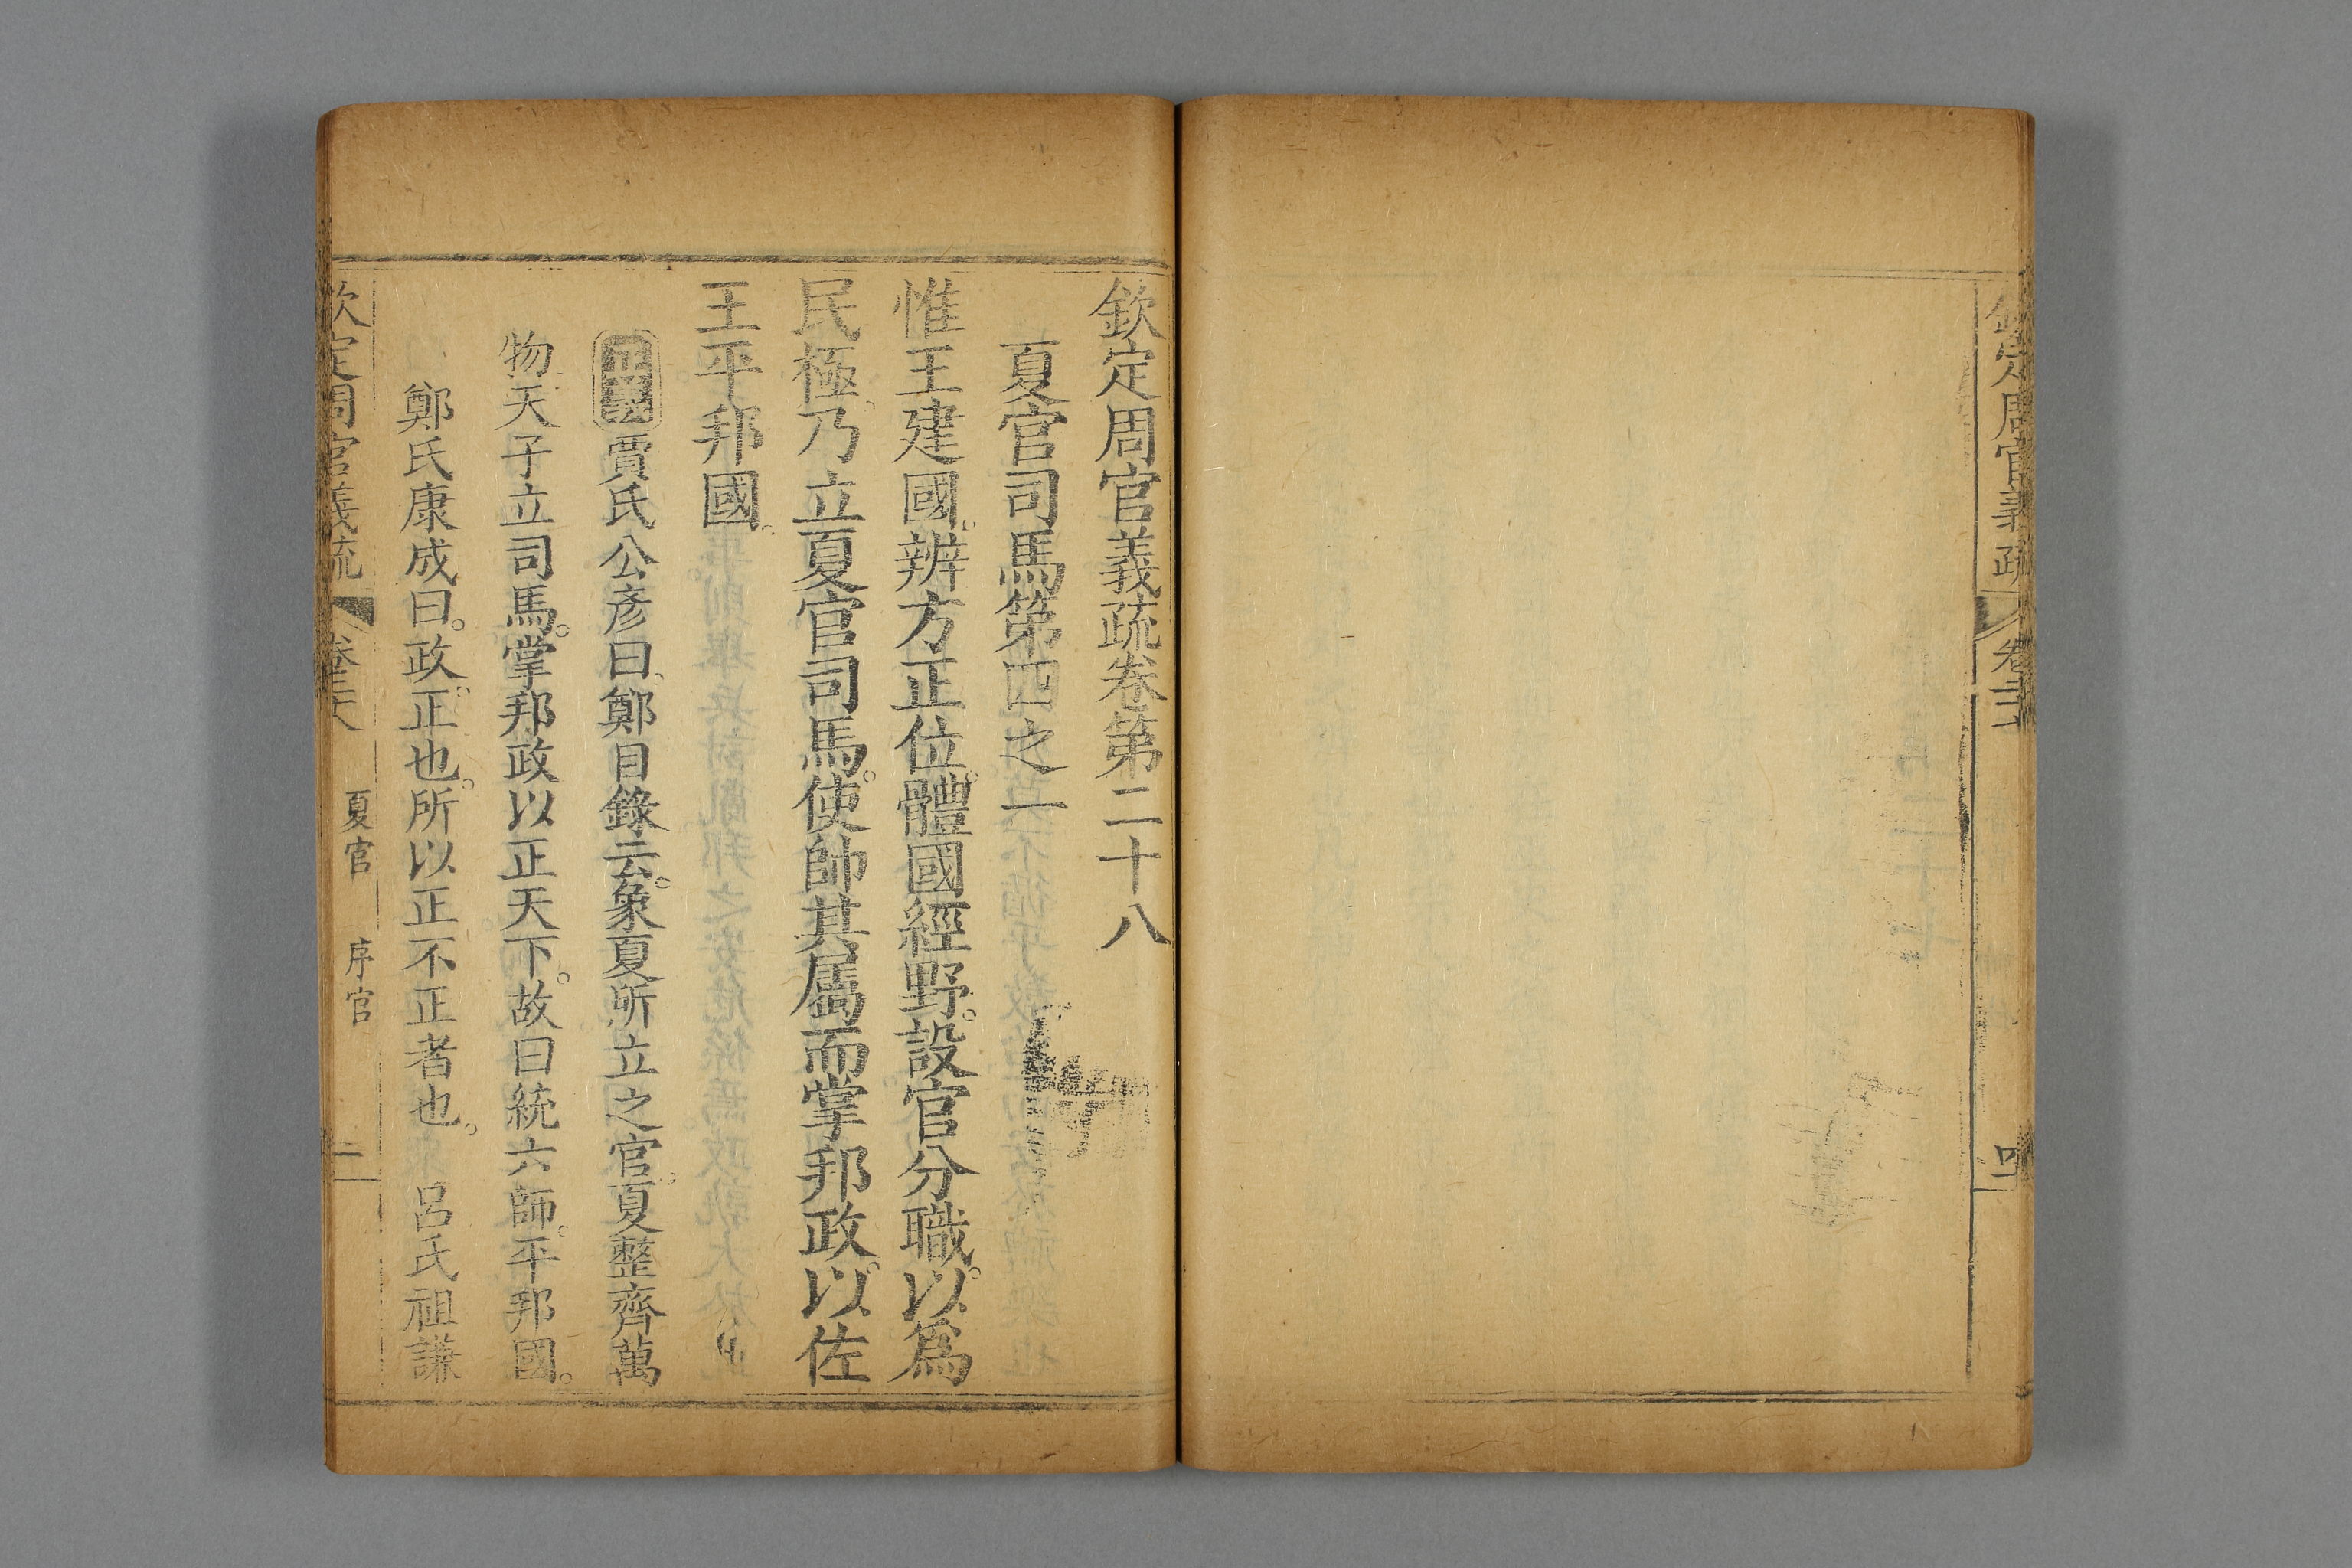 欽定周官義疏 卷二十
四
欽定周官義疏卷第二十八
夏官司馬第四之一
惟王建國。辨方正位。體國經野。設官分職。以爲
民極。乃立夏官司馬。使帥其屬而掌邦政。以佐
王平邦國。
正義 賈氏公彥曰、鄭目錄云。象夏所立之官。夏整齊萬
物。天子立司馬。掌邦政以正天下。故曰統六師。平邦國。
鄭氏康成曰。政。正也。所以正不正者也。 呂氏祖謙
欽定周官義疏 卷二十八 夏官 序官 二